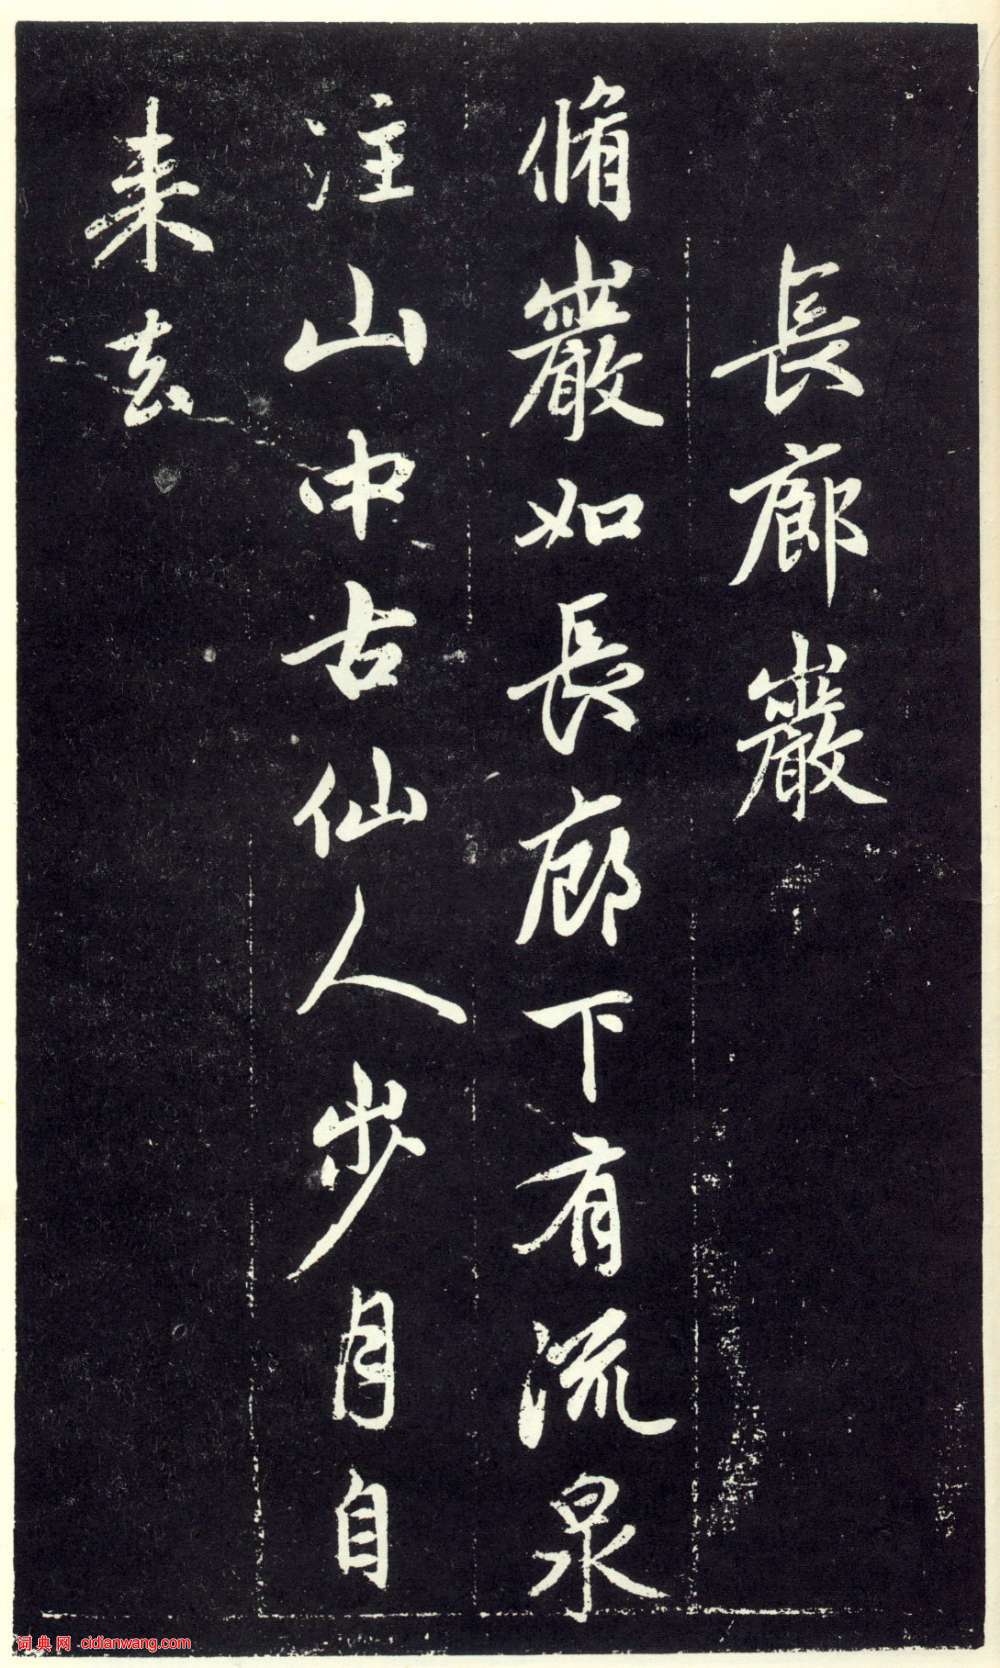 長廊巖
脩巖如長廊下有流泉
注山中古仙人步月自
来去
词典网 - cidianwang.com